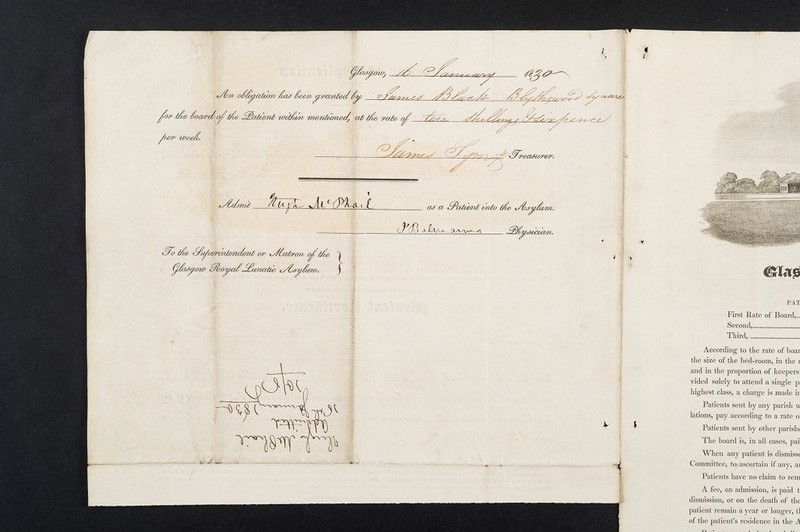 Glasgow, 16 January 1830
An obligation has been granted by James Black Blythswood Square
for the board of the Patient within mentioned, at the rate of ten Shillings & sixpence
per week.
James Treasurer.
Admit Hugh McPhail as a Patient into the Asylum.
Physician.
To the Superintendent or Matron of the
Glasgow Royal Lunatic Asylum.
Hugh McPhail
Admitted
16th January 1830
10/6
Glas
PAT
First Rate of Board,
Second,
Third,
According to the rate of boar
the size of the bed-room, in the
and in the proportion of keepers
vided solely to attend a single p
highest class, a charge is made in
Patients sent by any parish w
lations, pay according to a rate o
Patients sent by other parishe
The board is, in all cases, pai
When any patient is dismisse
Committee, to ascertain if any, an
Patients have no claim to rem
A fee, on admission, is paid t
dismission, or on the death of the
patient remain a year or longer, th
of the patient's residence in the A